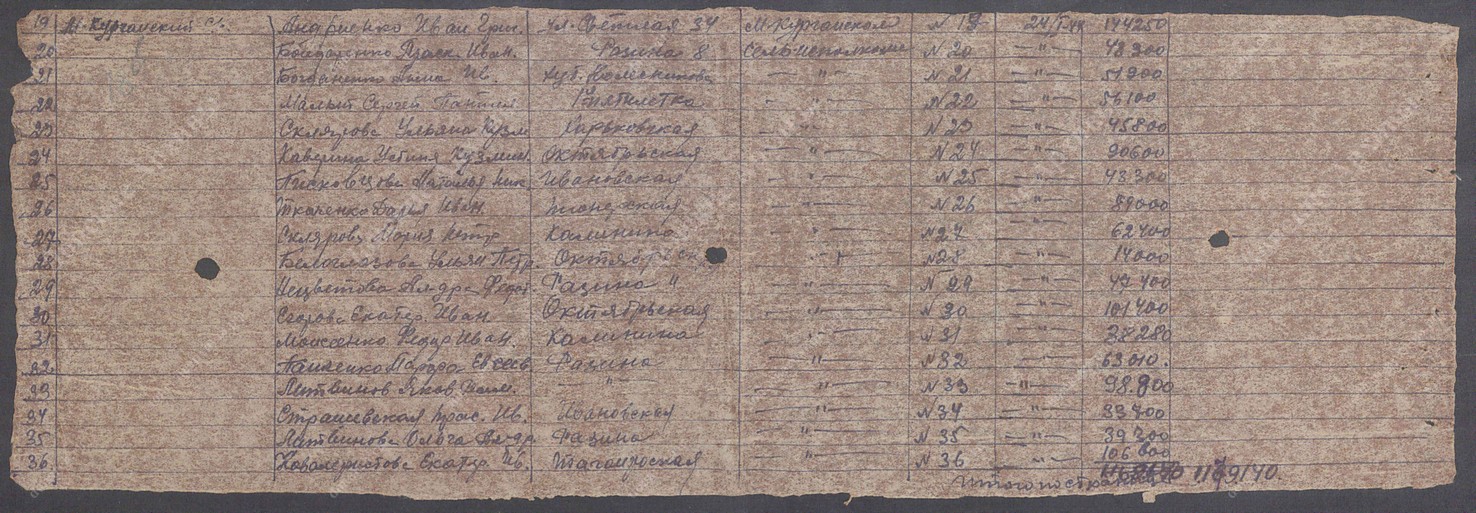 19 М-Курганский с/с. Андриенко Иван Григ. ул. Светлая 34 М-Курганском N 19 24/I-44 144250
20 Бондаренко Иван. Разина 8 Сельисполкоме N 20 -"- 48300
21 Богданенко Ив. хут. Колесниково -"- N 21 -"- 51900
22 Малыш Сергей 1я пятилетка -"- N 22 -"- 56100
23 Склярова Ульяна Кузм Харьковская -"- N 23 -"- 45800
24 Каверина Устиня Кузмин. Октябрьская -"- N 24 -"- 90600
25 Наталья Ник. Ивановская -"- N 25 -"- 43300
26 Ткаченко Дарья Иван. -"- N 26 -"- 89000
27 Склярова Мария Петр Калинина -"- N 27 -"- 62400
28 Белоглазова Ульян Петр. Октябрьск -"- N 28 -"- 14000
29 Нецветова Ал-дра Федот Разина 11 -"- N 29 -"- 47400
30 Егорова Екатер. Иван Октябрьская -"- N 30 -"- 101400
31 Моисеенко Федор Иван. Калинина -"- N 31 -"- 38280
32 Разина -"- N 32 -"- 63010.
33 Литвинов Яков -"- -"- N 33 -"- 98.900
34 Страшевская Прас. Ив. Ивановская -"- N 34 -"- 33400
35 Литвинова Ольга Ал-др. Разина -"- N 35 -"- 39300
36. Екатер. Ив. Таганрогская -"- N 36 -"- 106600
Итого по странице